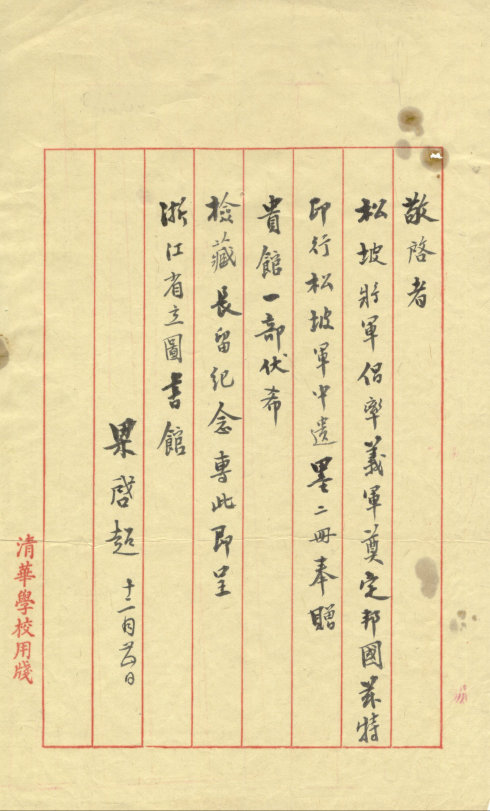 敬啓者
松坡將軍倡率義軍奠定邦國茲特
印行松坡軍中遺墨二冊奉贈
貴館一部伏希
檢藏長留紀念專此即呈
浙江省立圖書館
梁啓超 十二月廿日
清華學校用牋